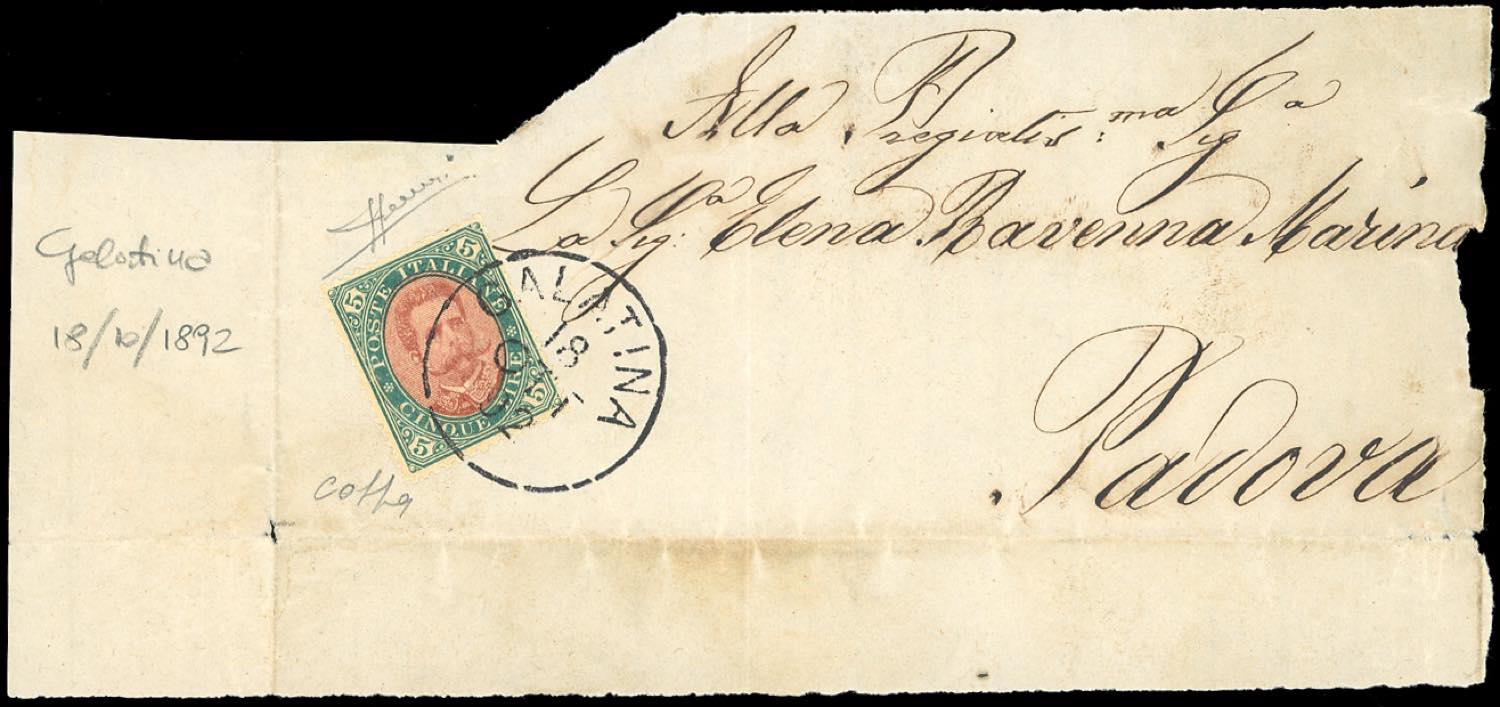 Alla Pregiatis:ma Sigа
La Sig:a Elena Ravenna Marina
Padova
Galatina
18/10/1892
5 POSTE ITALIANE 5
5 CINQUE LIRE 5
GALATINA
18
92